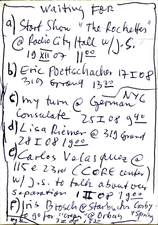 WAITING FOR
a) Start Show "The Rockettes"
@ Radio City Hall w/J.S.
19 XII 07 11⁰⁰
NYC
b) Eric Poettschacher 17 I 08
319 Grand 13²⁰
c) my turn @ German
Consulate 25 I 08 9⁴⁰
d) Lisa Riemer @ 319 Grand
28 I 08 19⁰⁰
e) Carlos Velasquez @
115 e 23rd (CORE center)
w/ J.S. to talk about our
separation 1 II 08 19⁰⁰
f) Iris Brosch @ Starbucks
& go for @ Urban Spain